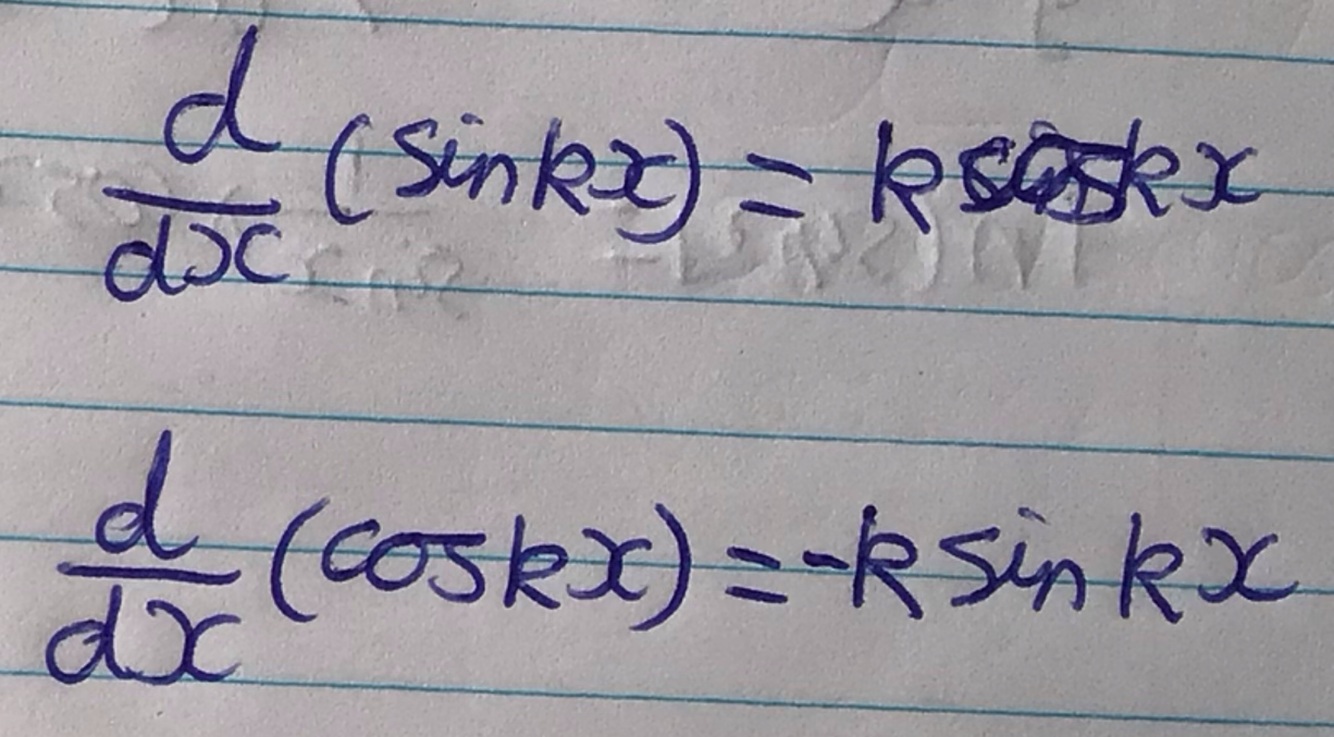 d/dx (sin kx) = k cos kx
d/dx (cos kx) = -k sin kx